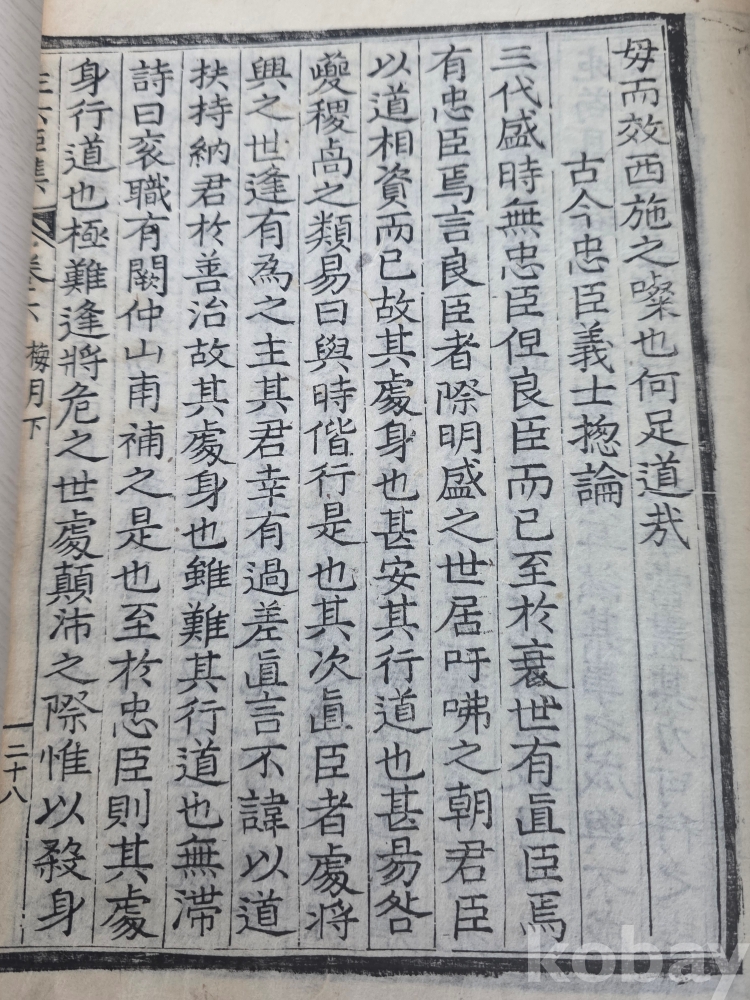 毋而效西施之也何足道哉
古今忠臣義士揔論
三代盛時無忠臣但良臣而已至於衰世有直臣焉
有忠臣焉言良臣者際明盛之世居吁咈之朝君臣
以道相資而已故其處身也甚安其行道也甚易咎
夔稷卨之類易曰與時偕行是也其次直臣者處將
興之世逢有為之主其君幸有過差直言不諱以道
扶持納君於善治故其處身也雖難其行道也無滯
詩曰袞職有闕仲山甫補之是也至於忠臣則其處
身行道也極難逢將危之世處顛沛之際惟以殺身
生六臣集 卷之六 梅月下 二十八
kobay